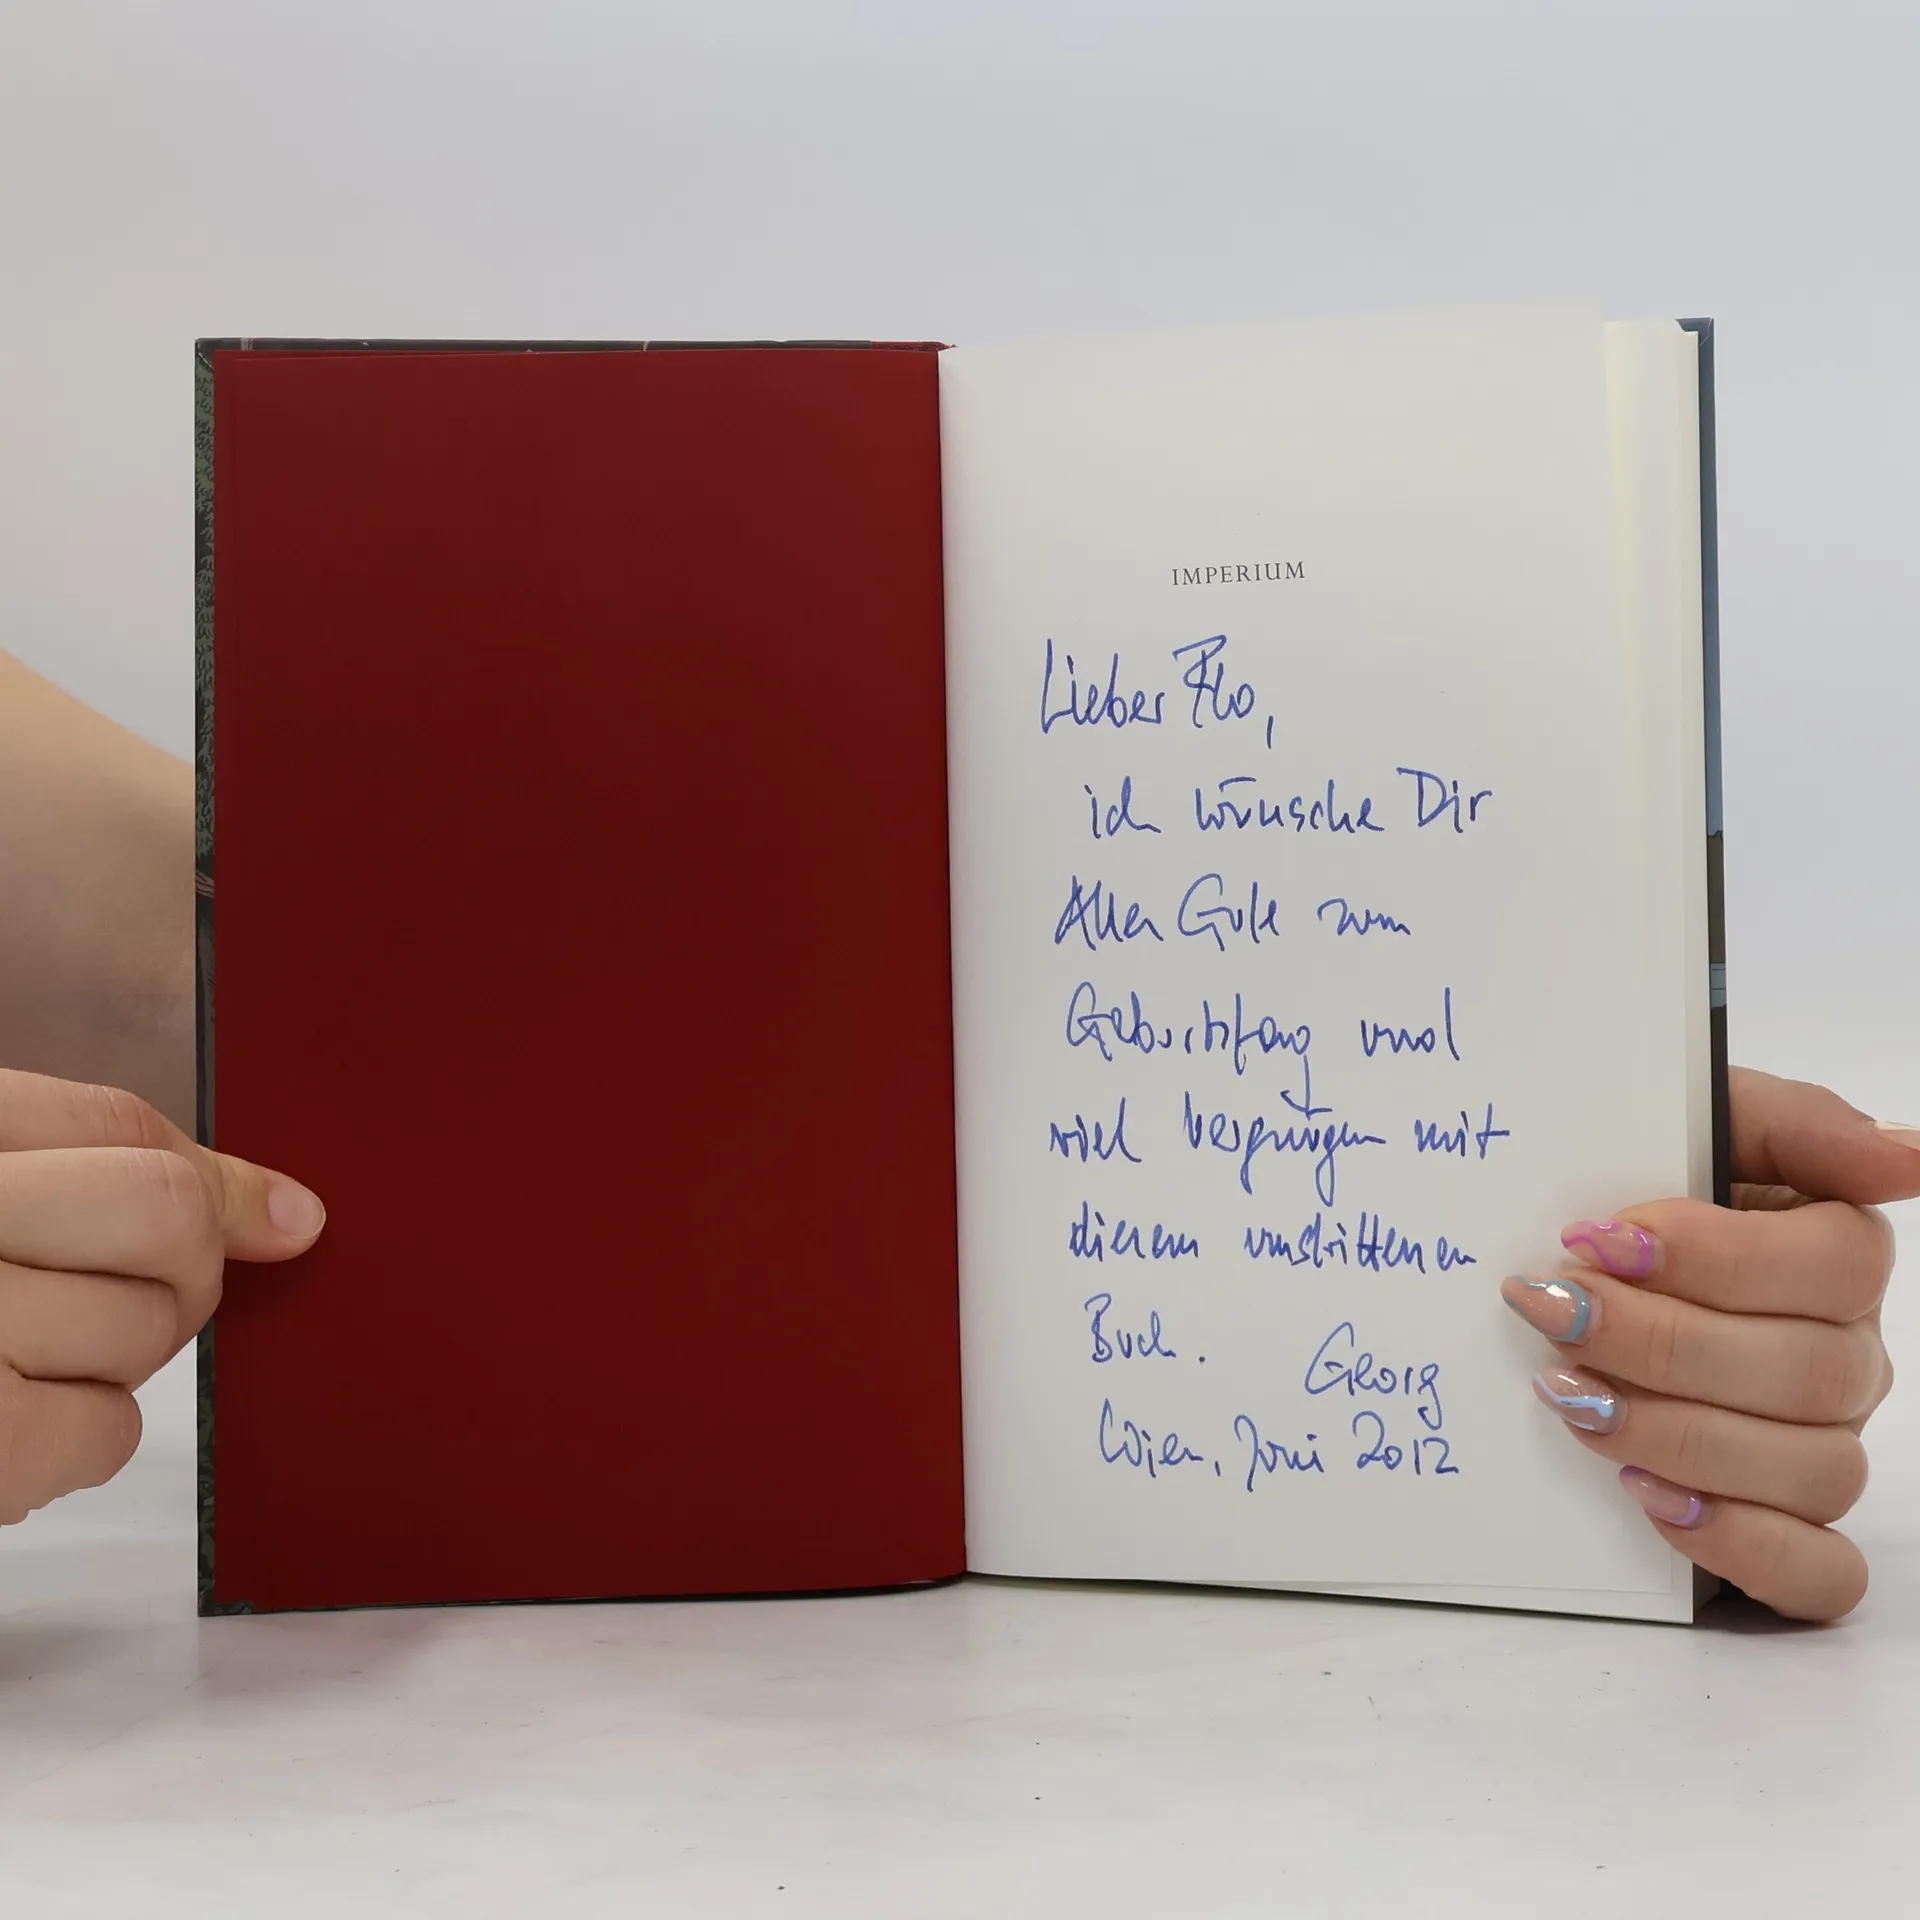 IMPERIUM
Lieber Flo,
ich wünsche Dir
Alles Gute zum
Geburtstag und
viel Vergnügen mit
diesem umstrittenen
Buch.
Georg
Wien, Juni 2012